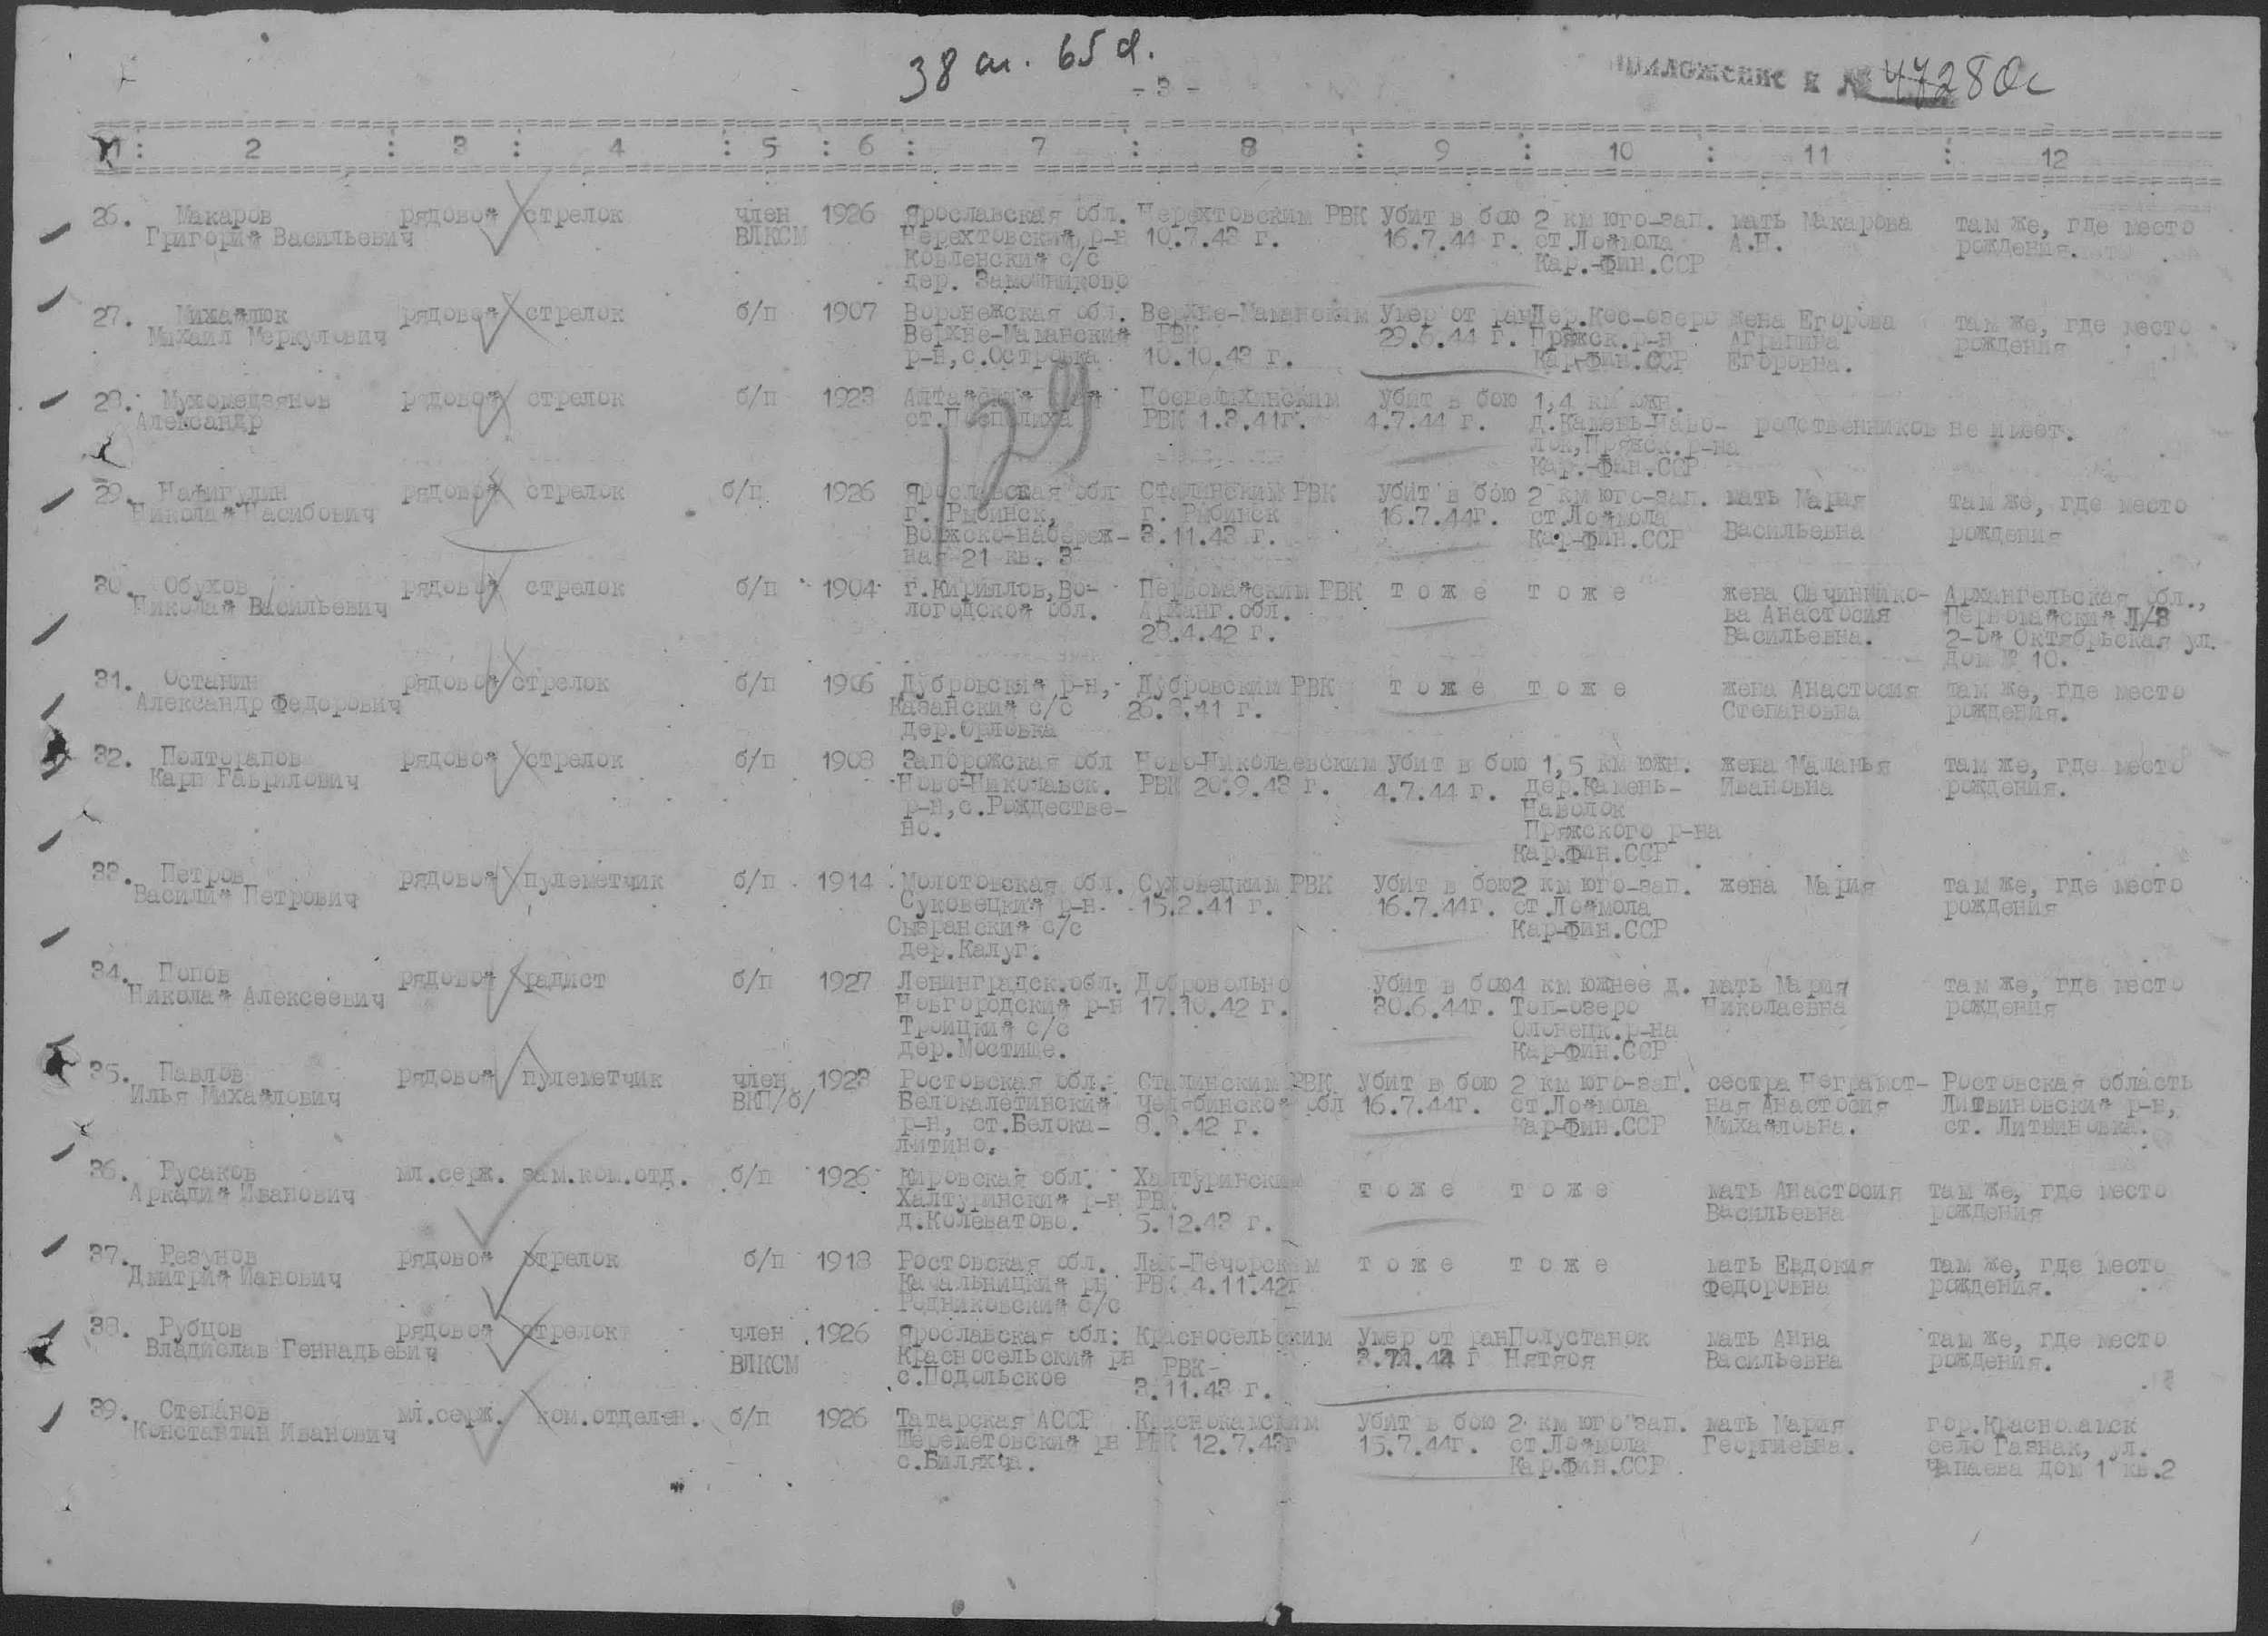 38 сп. 65 д.
- 3 -
Приложение к № 47280с
1 : 2 : 3 : 4 : 5 : 6 : 7 : 8 : 9 : 10 : 11 : 12
26. Макаров рядовой стрелок член 1926 Ярославская обл. Нерехтовским РВК убит в бою 2 км юго-зап. мать Макарова там же, где место
Григорий Васильевич ВЛКСМ Нерехтовский р-н 10.7.43 г. 16.7.44 г. ст.Лоймола А.Н. рождения.
Ковленский с/с Кар.-Фин.ССР
дер. Замошниково
27. Михайлюк рядовой стрелок б/п 1907 Воронежская обл. Верхне-Маманским Умер от ран Дер.Кос-озеро жена Егорова там же, где место
Михаил Меркулович Верхне-Маманский РВК 29.6.44 г. Пряжск.р-н Аграпина рождения
р-н,с.Островка 10.10.43 г. Кар-Фин.ССР Егоровна.
28. Мухомедзянов рядовой стрелок б/п 1923 Алтайский Поспелихинским убит в бою 1,4 км южн.
Александр ст.Поспелиха РВК 1.3.41г. 4.7.44 г. д.Камень-Наво- родственников не имеет.
лок,Пряжск.р-на
Кар.-Фин.ССР
29. Нафигулин рядовой стрелок б/п. 1926 Ярославская обл Сталинским РВК убит в бою 2 км юго-зап. мать Мария там же, где место
Николай Насибович г. Рыбинск, г. Рыбинск 16.7.44г. ст.Лоймола Васильевна рождения
Волжско-набереж- 3.11.43 г. Кар-Фин.ССР
ная 21 кв. 3
30. Обухов рядовой стрелок б/п 1904 г.Кириллов,Во- Первомайским РВК т о ж е т о ж е жена Овчиннико- Архангельская обл.,
Николай Васильевич логодской обл. Арханг.обл. ва Анастосия Первомайский П/З
23.4.42 г. Васильевна. 2-ой Октябрьская ул.
дом № 10.
31. Останин рядовой стрелок б/п 1906 Дубровский р-н, Дубровским РВК т о ж е т о ж е жена Анастосия там же, где место
Александр Федорович Казанский с/с 41 г. Степановна рождения.
дер.Орловка
32. Полторапов рядовой стрелок б/п 1903 Запорожская обл Ново-Николаевским убит в бою 1,5 км южн. жена Маланья там же, где место
Карп Гаврилович Ново-Николавск. РВК 20.9.43 г. 4.7.44 г. дер.Камень- Ивановна рождения.
р-н,с.Рождестве- Наволок
но. Пряжского р-на
Кар.Фин.ССР
33. Петров рядовой пулеметчик б/п 1914 Молотовская обл. Суковецким РВК убит в бою 2 км юго-зап. жена Мария там же, где место
Василий Петрович Суковецкий р-н. 15.2.41 г. 16.7.44г. ст.Лоймола рождения
Сыгранский с/с Кар-Фин.ССР
дер.Калуг.
34. Попов рядовой радист б/п 1927 Ленинградск.обл. Добровольно убит в бою 4 км южнее д. мать Мария там же, где место
Николай Алексеевич Новгородский р-н 17.10.42 г. 30.6.44г. Топ-озеро Николаевна рождения
Троицкий с/с Олонецк.р-на
дер.Мостище. Кар-Фин.ССР
35. Павлов рядовой пулеметчик член 1923 Ростовская обл. Сталинским РВК убит в бою 2 км юго-зап. сестра Неграмот- Ростовская область
Илья Михайлович ВКП/б/ Белокалетинский Челябинской обл 16.7.44г. ст.Лоймола ная Анастосия Литвиновский р-н,
р-н, ст.Белока- 42 г. Кар-Фин.ССР Михайловна. ст. Литвиновка.
литино.
36. Русаков мл.серж. зам.ком.отд. б/п 1926 Кировская обл. Халтуринским т о ж е т о ж е мать Анастосия там же, где место
Аркадий Иванович Халтуринский р-н РВК Васильевна рождения
д.Колеватово. 5.12.43 г.
37. Резунов рядовой стрелок б/п 1918 Ростовская обл. Лак-Печорским т о ж е т о ж е мать Евдокия там же, где место
Дмитрий Иванович Качальницкий рн РВК 4.11.42г Федоровна рождения.
Родниковский с/с
38. Рубцов рядовой стрелок член 1926 Ярославская обл: Красносельским Умер от ран Полустанок мать Анна там же, где место
Владислав Геннадьевич ВЛКСМ Красносельский рн РВК Нятяоя Васильевна рождения.
с.Подольское 3.11.43 г.
39. Степанов мл.серж. ком.отделен. б/п 1926 Татарская АССР Краснокамским убит в бою 2 км юго зап. мать Мария гор.Краснокамск
Константин Иванович Шереметовский рн РВК 12.7.43г 15.7.44г. ст.Лоймола Георгиевна. село Гаянак, ул.
с.Биляхча. Кар.Фин.ССР. Чапаева дом 1 кв.2